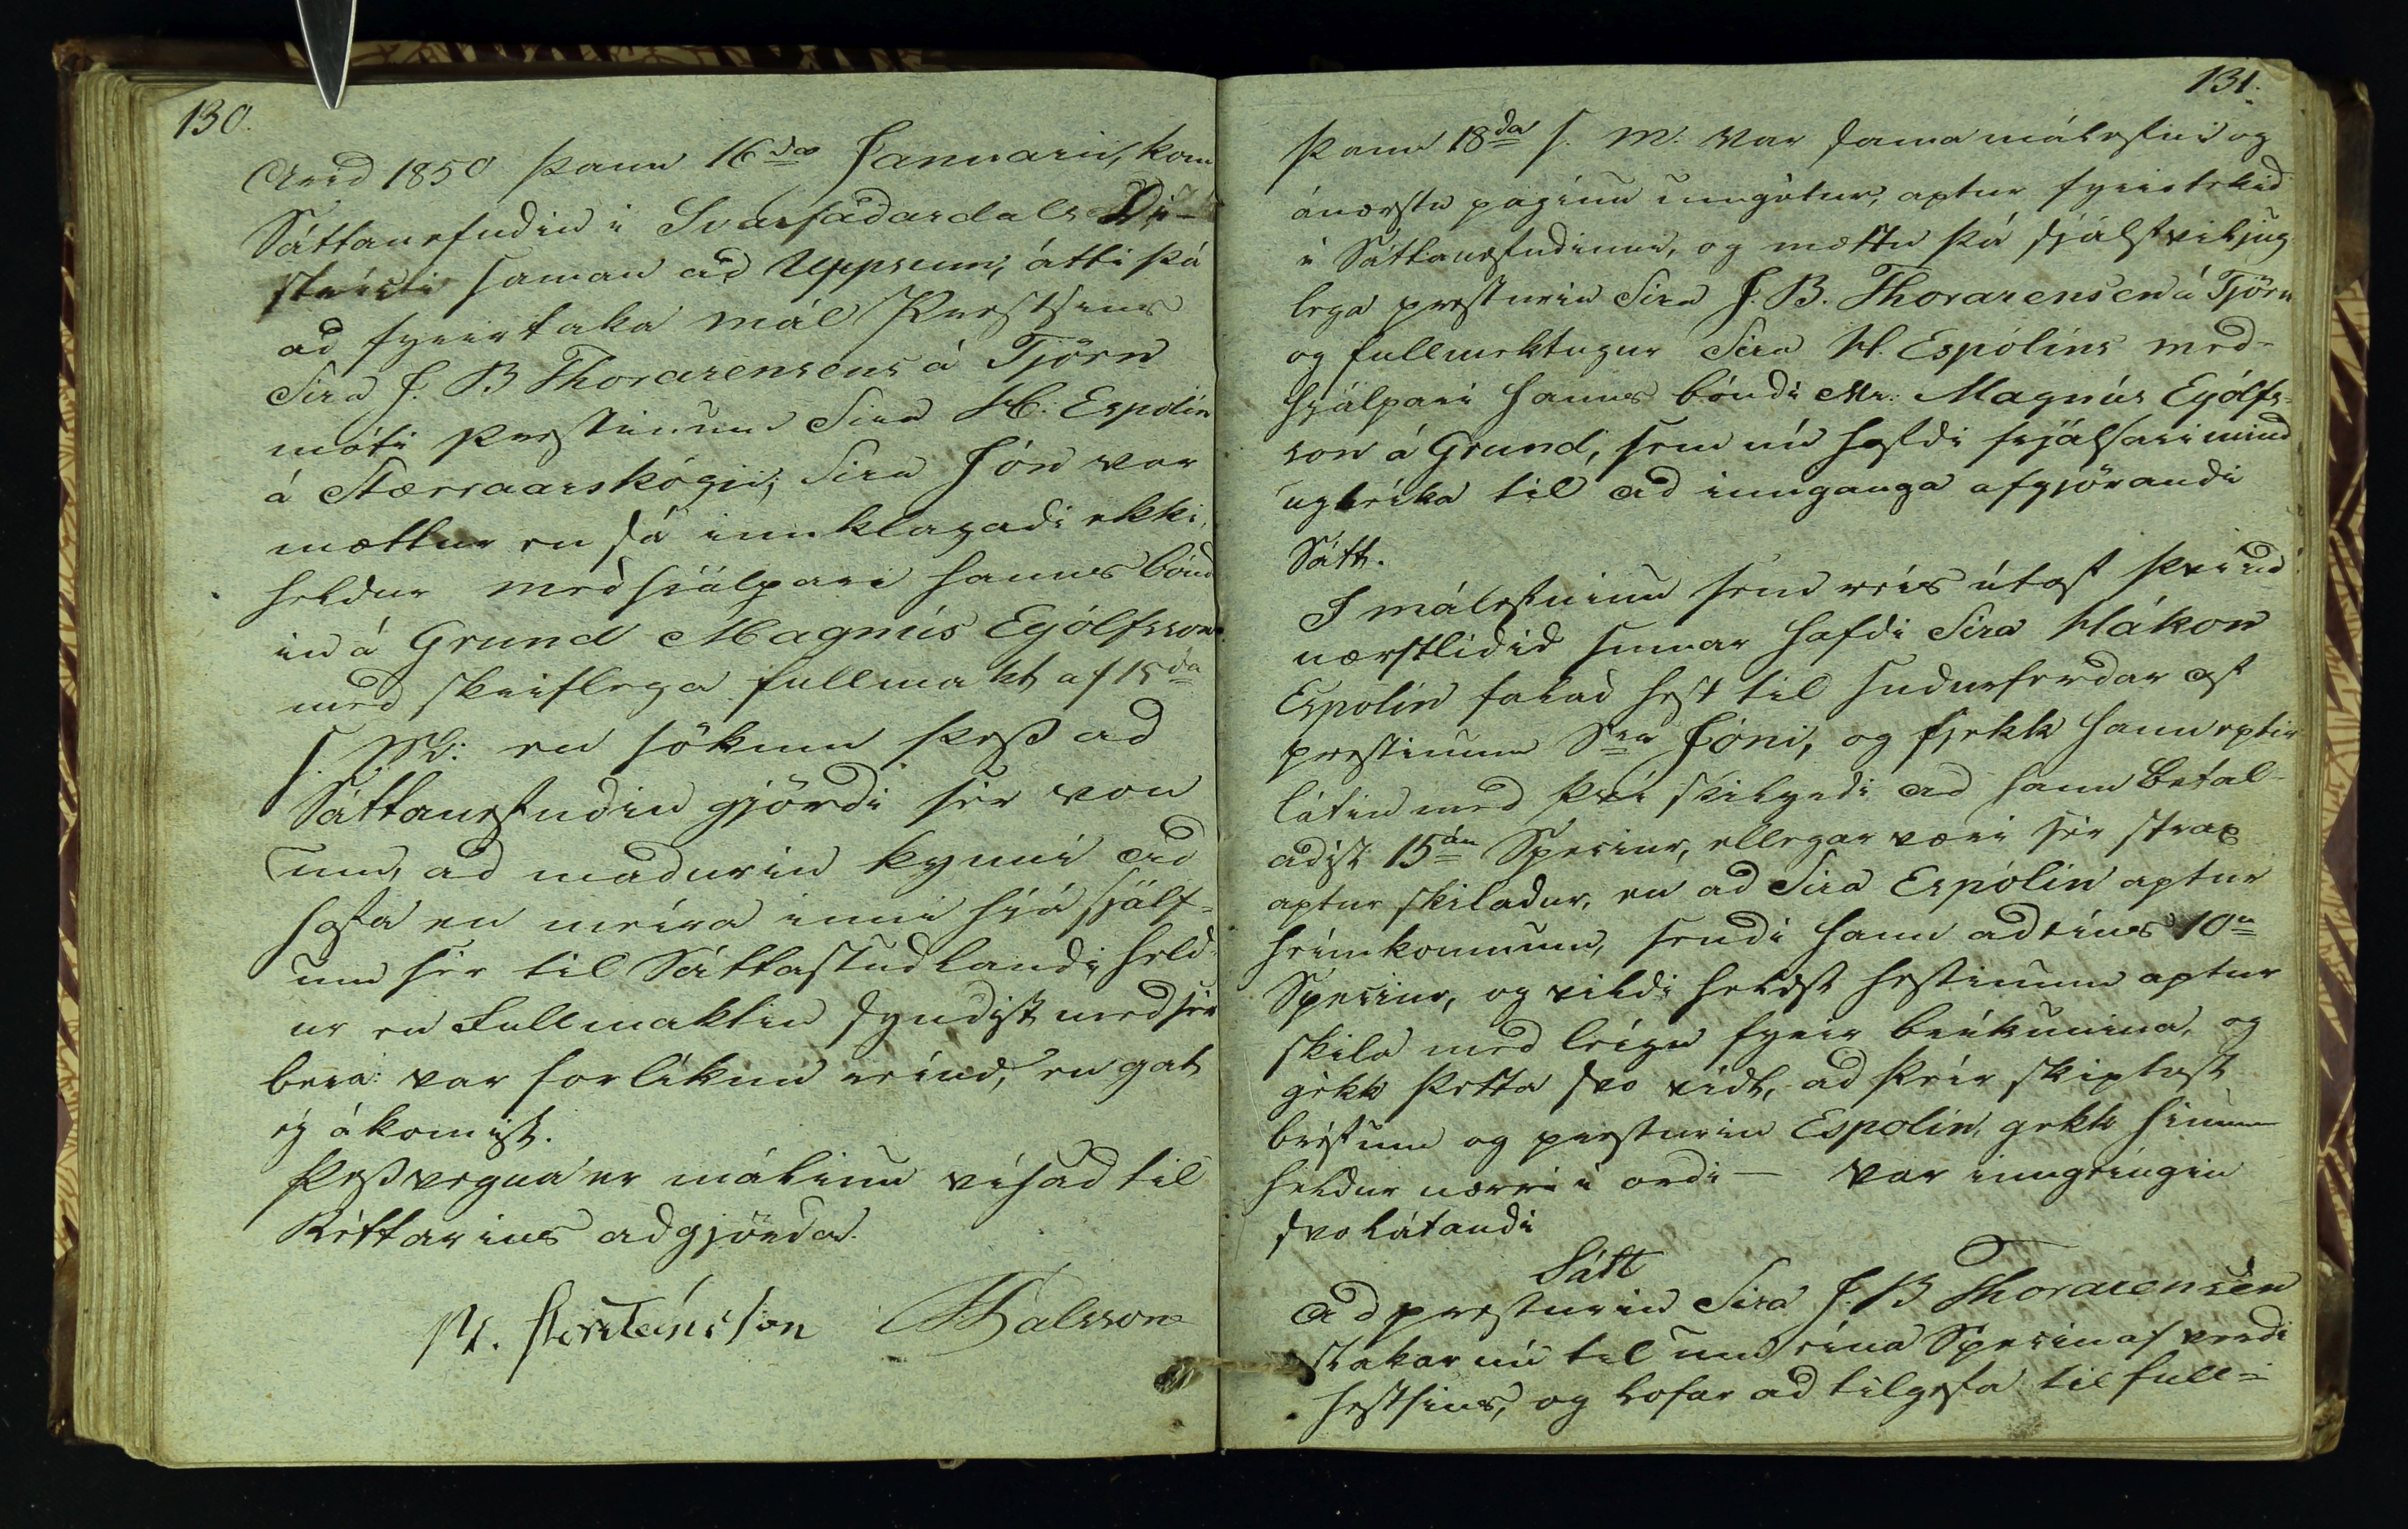 130.
Arid 1850 þann 16da Januarii, kom
Sáttanefndin i Svarfadardals Di-
stricti saman ad Uppsum, átti þá
ad fyrirtaka mál Prestsins
Sira J. B Thorarensens á Tjörn
móti Prestinum Sira H. Espolin
á Stærraarskógji; Sira Jón var
mættur en sá innklagadi ekki,
heldur medhjálpari hanns bónd
in á Grund Magnús Eyólfsson
med skriflega fullmakt af 15da
s. M: en sökum þess ad
Sáttanefndin gjördi sér von
um, ad madurin kynni ad
hafa en meira inni hjá sjálf-
um sér til Sáttastudlandi held-
ur en Fullmaktin syndist med sér
bera: var forlikun reind, en gat
ej ákomist.
Þessvegna er málinu vísad til
Réttarins adgjörda.
Þ. Þorsteinsson
131.
Þann 18da s. M: var sama málefni og
ánærstu pagínu umgétur, aptur fyrirtekid
i Sáttanefndinni, og mættu þá sjálfviljug-
lega presturin Sira J. B. Thorarensen á Tjörn
og fullmektugur Sira H. Espólins med-
hjálpari hanns bóndi Mr. Magnús Eyólfs-
son á Grund, sem nú hafdi frjálsari mynd
ugleika til ad innganga afgjörandi
Sátt.
I málefninu sem reis útaf þvi ad
nærstlidid sumar hafdi Sira Hákon
Espolin falad hest til sudurferdar af
prestinum Sra Jóni, og fjekk hann eptir
látin med því skilyrdi ad hann betal-
adist 15án Speciur, ellegar væri sér strax
aptur skiladur, en ad Sira Espólin aptur
heimkomnum, sendi hann adeins 10u
Speciur, og vildi heldst hestinum aptur
skila med leigu fyrir brúkunina, og
gekk þetta svo vidt, ad þeir skiptust
bréfum og presturin Espolin, gekk hinum
heldur nærri i ordi — var inngeingin
svolátandi
Sátt
Ad presturin Sira J. B Thorarensen
slakar nú til um eina Speciu af verdi
hestsins, og lofar ad tilgefa til full-